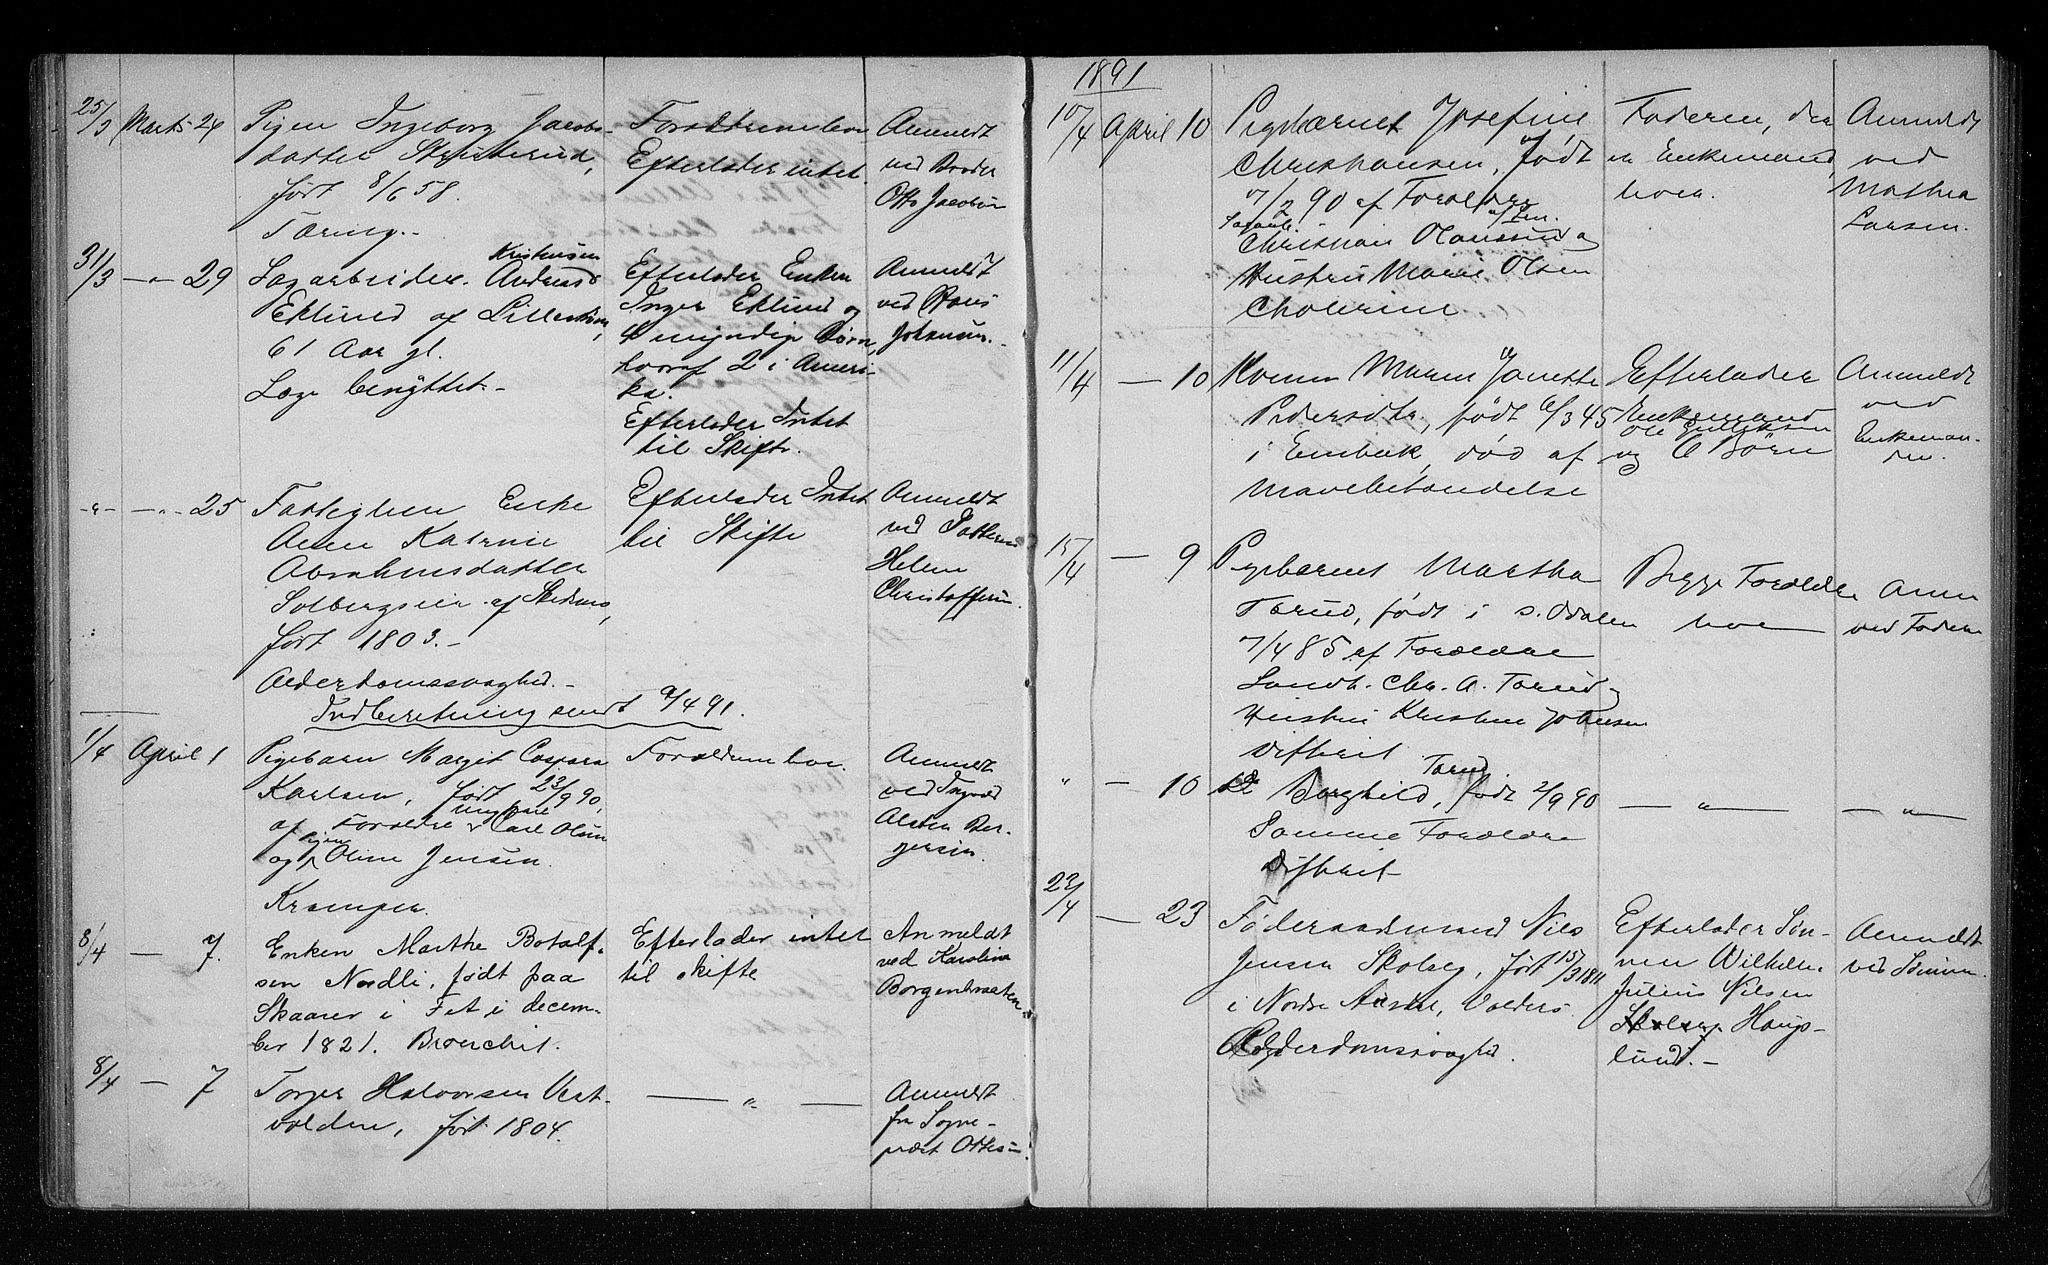 25/3 Marts 24 Pigen Ingeborg Jacobs-
datter
født 8/6 58.
Tæring.-
Forældrene leve
Efterlader intet.
Anmeldt
ved Broder
Otto Jacobsen
31/3 -"- 29 Sagarbeider Kristensen
Andreas
Eklund af Lillestrøm,
61 Aar gl.
Læge benyttet.-
Efterlader Enken
Inger Eklund og
4 myndige Børn,
hvoraf 2 i Ameri-
ka.
Efterlader Intet
til Skifte.
Anmeldt
ved Hans
Johansen.
-"- -"- 25 Fattiglem Enke
Anne Katrine
Abrahamsdatter
Solbergseie af Skedsmo,
født 1803.-
Alderdomssvaghed.-
Efterlader Intet
til Skifte
Anmeldt
ved Datteren
Helene
Christoffersen.
Indberetning sendt 9/4 91.
1/4 April 1 Pigebarn Margit Caspara
Karlsen, født 23/9 90,
af Forældre Ungkarl Carl Olsen
og Pigen Oline Jensen.
Kramper.
Forældrene leve.
Anmeldt
ved Ingvald
Alsten Ber-
gersen.
8/4 — 7. Enken Marthe Botolf-
sen Nordli, født paa
Skaarer i Fet i decem-
ber 1821. Bronchit.
Efterlader intet
til skifte
Anmeldt
ved Karoline
Borgenbraaten.
8/4 — 7 Torger Halvorsen Vest-
volden, født 1804.
— " —
Anmeldt
fra Sogne-
præst Ottesen.
1891
10/4 April 10 Pigebarnet Josefine
Christiansen, født
7/2 90 af Forældre
Christian Olaussen og
Hustru Marie Olsen
Cholerine
Faderen, der
er Enkemand,
lever.
Anmeldt
ved
Mathea
Larsen.
11/4 — 10 Konen Maren Janette
Pedersdtr., født 6/3 45
i Enebak, død af
Mavebetændelse
Efterlader
Enkemand
Ole Gulliksen
og 6 Børn
Anmeldt
ved
Enkeman-
den.
15/4 — 9 Pigebarnet Martha
Torud, født i S. Odalen
7/4 85 af Forældre
Landh. Chr. A. Torud og
Hustru Kristine Johnsen
Difterit
Begge Forældre
leve
Anm
ved Faderen
" — 10 do Borghild Torud, født 2/9 90
Samme Forældre
Difterit
— " —
— " —
22/4 — 23 Føderaadsmand Nils
Jensen Skolseg, født 15/3 1811
i Nordre Aurdal, Valders.
Alderdomssvaghed.
Efterlader Søn-
nen Wilhelm
Julius Nilsen
Skolseg Haugs-
lund.-
Anmeldt
ved Sønnen.